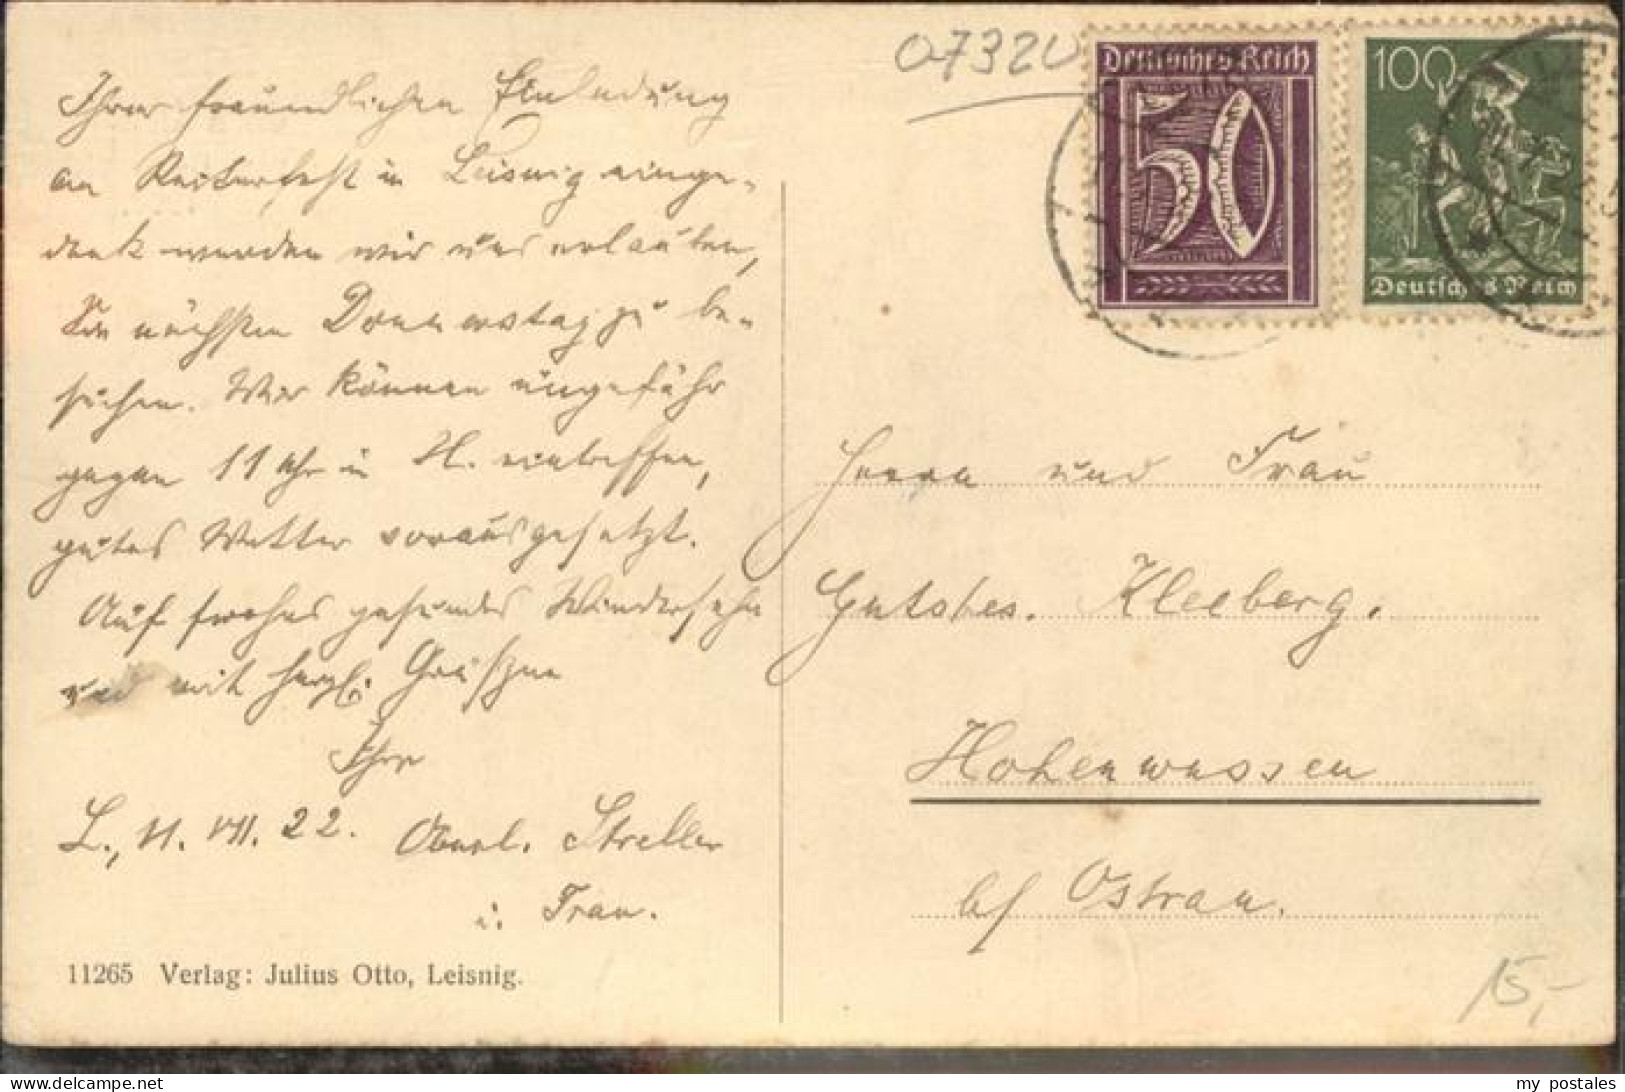 07320
Deutsches Reich
50
100
Deutsches Reich
Ihrer freundlichen Einladung
am Reiterfest in Leisnig einge-
denk werden wir uns erlauben,
Sie nächsten Donnerstag zu be-
suchen. Wir können ungefähr
gegen 11 Uhr in H. eintreffen,
gutes Wetter vorausgesetzt.
Auf frohes gesundes Wiedersehn
und mit herzl. Grüßen
Ihre
L., 11. VII. 22. Oberl. Streller
u. Frau.
11265 Verlag: Julius Otto, Leisnig.
Herrn und Frau
Gutsbes. Kleeberg.
Hohenwussen
b/ Ostrau.
15,-
my postales